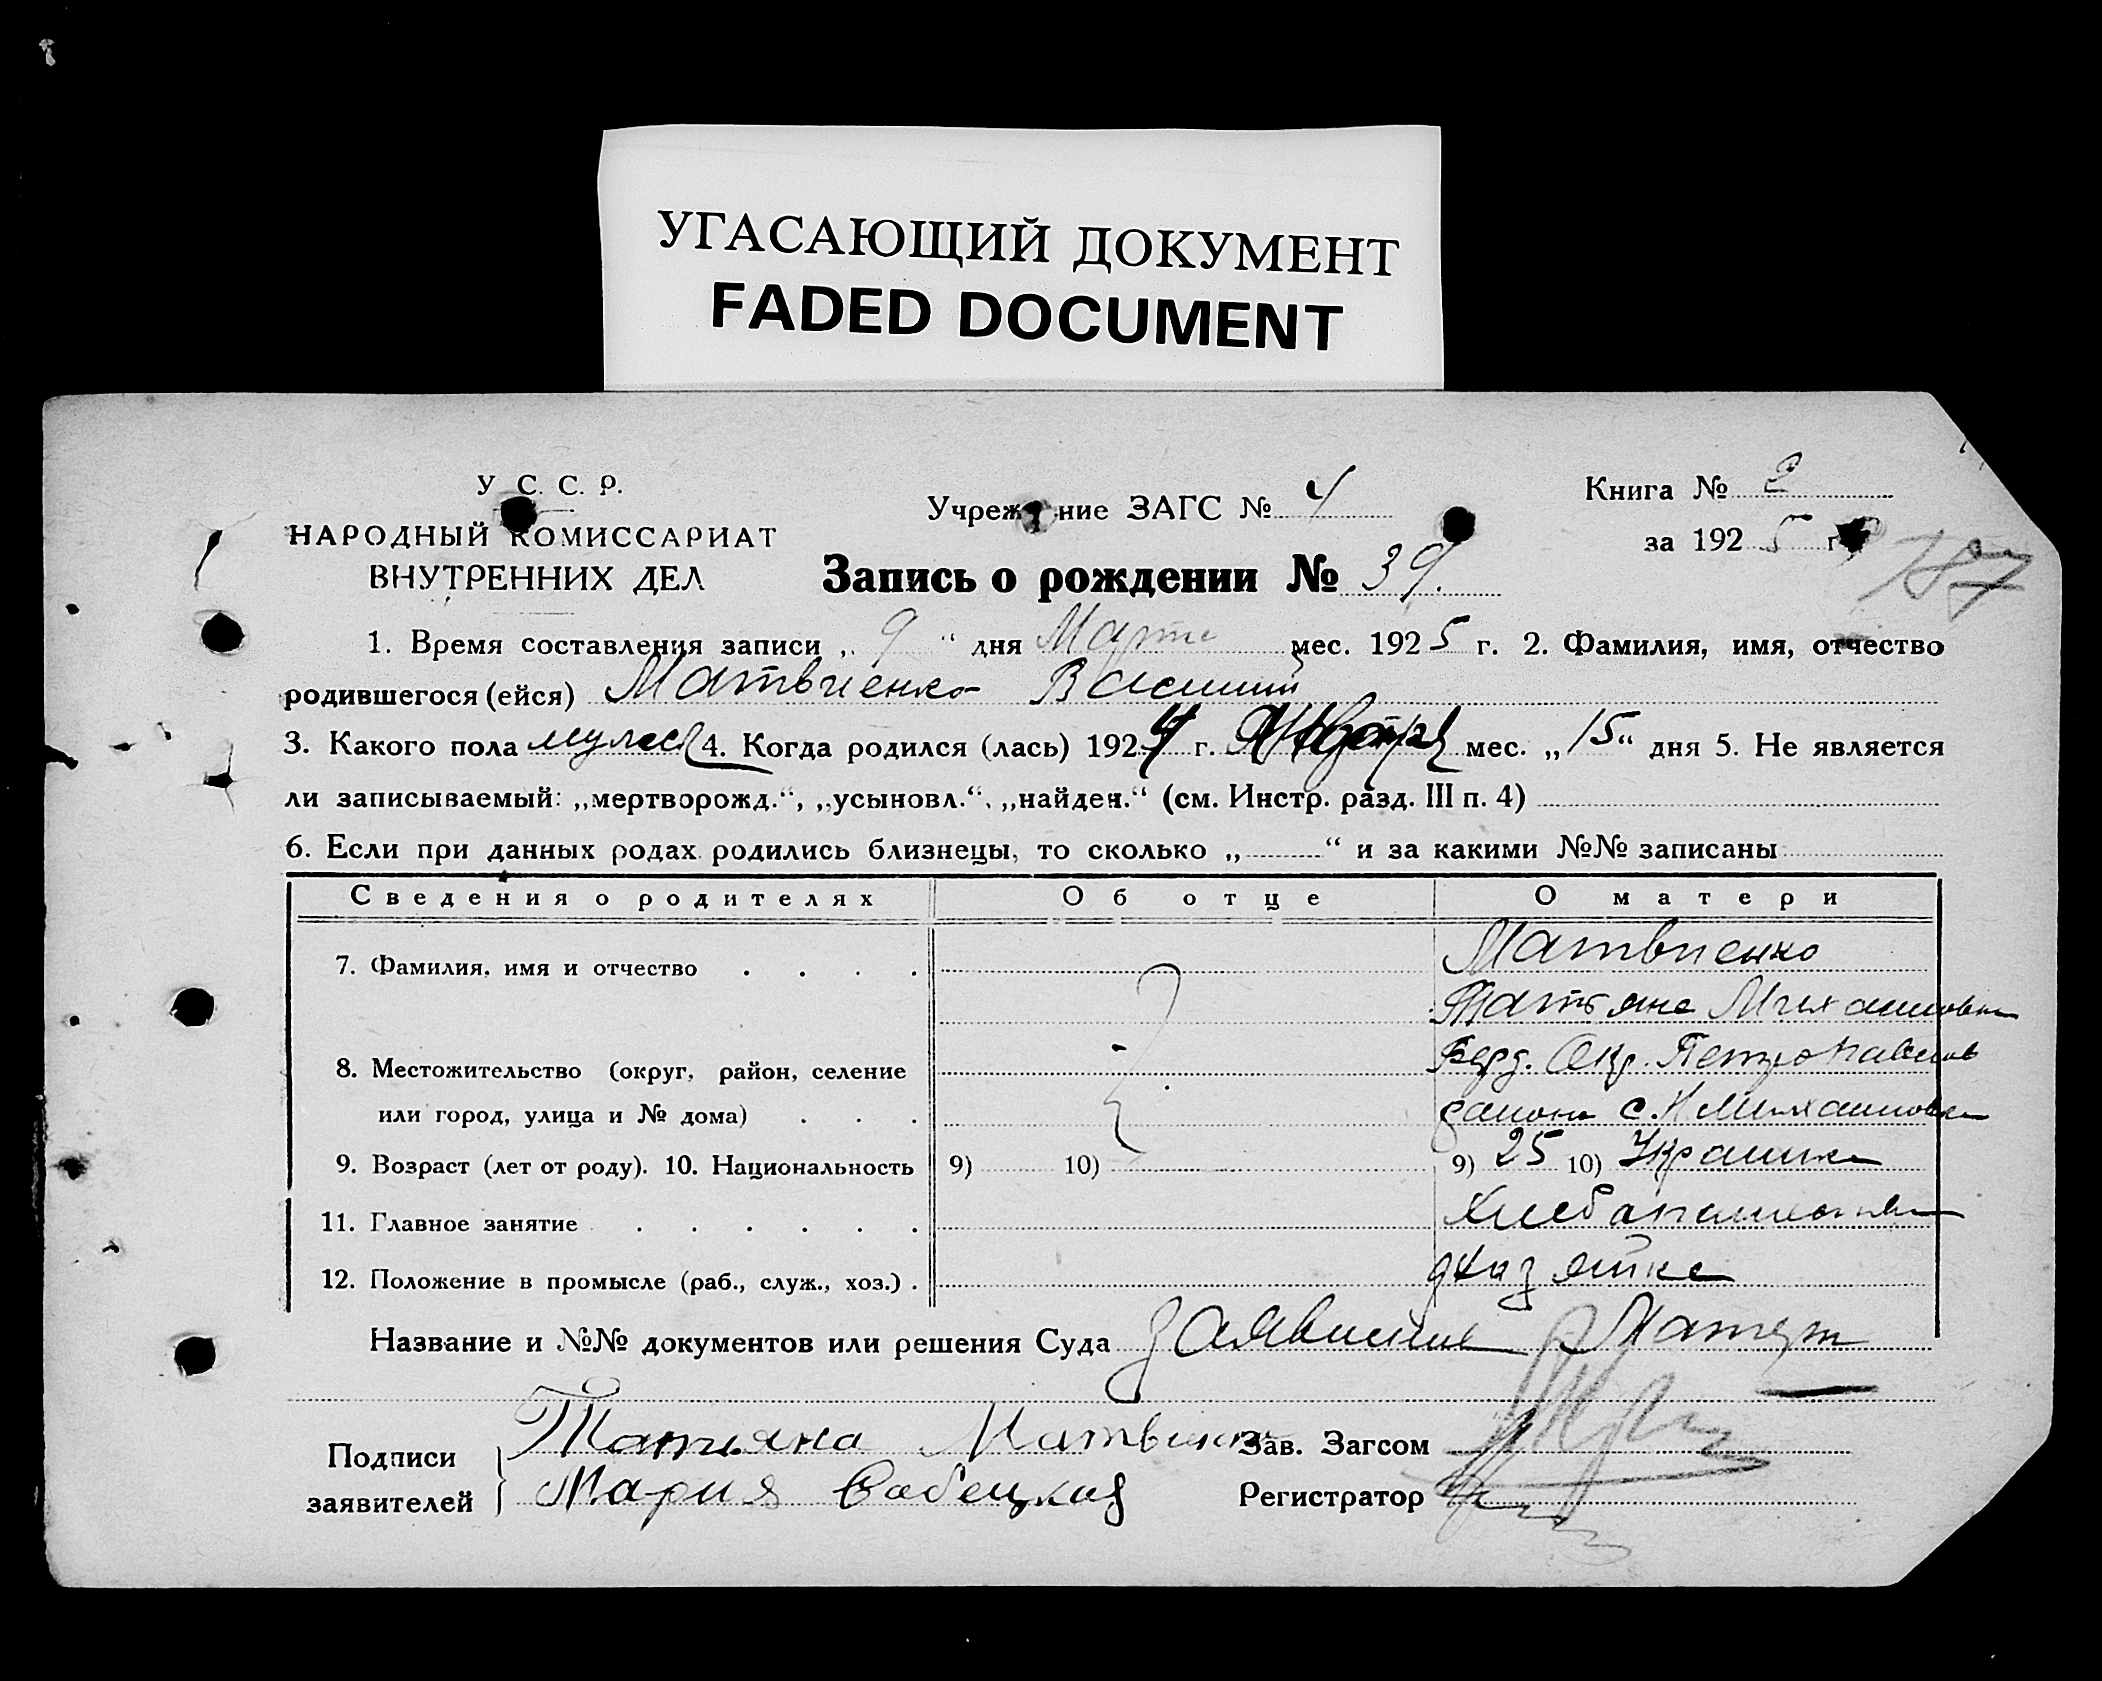 УГАСАЮЩИЙ ДОКУМЕНТ
FADED DOCUMENT
У. С. С. Р.
НАРОДНЫЙ КОМИССАРИАТ
ВНУТРЕННИХ ДЕЛ
Учреж ние ЗАГС № 4
Книга № 2
за 1925 г.
187
Запись о рождении № 39.
1. Время составления записи „ 9 “ дня Марта мес. 1925 г. 2. Фамилия, имя, отчество
родившегося (ейся) Матвиенко Василий
3. Какого пола 4. Когда родился (лась) 1924 г. мес. „15“ дня 5. Не является
ли записываемый: „мертворожд.“, „усыновл.“, „найден.“ (см. Инстр. разд. III п. 4)
6. Если при данных родах родились близнецы, то сколько „ “ и за какими №№ записаны
Сведения о родителях Об отце О матери
7. Фамилия, имя и отчество Матвиенко
Татьяна Михайловна
8. Местожительство (округ, район, селение Берд. Окр. Петропавлов
или город, улица и № дома) района с. Н Михайловка
9. Возраст (лет от роду). 10. Национальность 9) 10) 9) 25 10) Украинка
11. Главное занятие
12. Положение в промысле (раб., служ., хоз.) хозяйка
Название и №№ документов или решения Суда заявление Матери
Подписи заявителей
Татьяна Матвиенко
Мария
Зав. Загсом
Регистратор